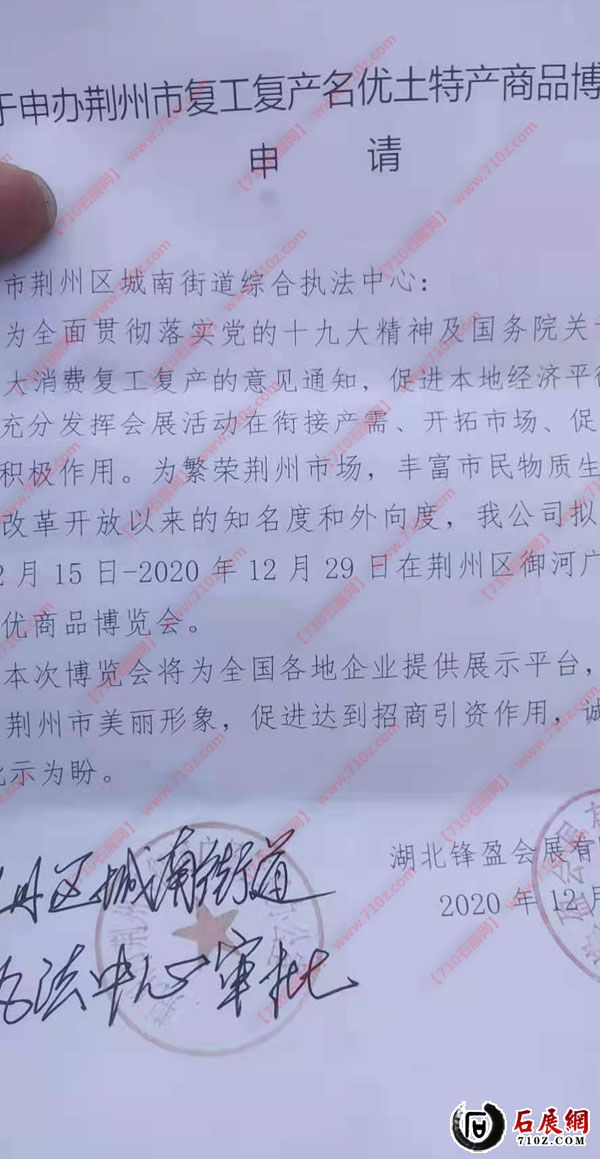 于申办荆州市复工复产名优土特产商品博
申 请
市荆州区城南街道综合执法中心：
为全面贯彻落实党的十九大精神及国务院关于
大消费复工复产的意见通知，促进本地经济平衡
充分发挥会展活动在衔接产需、开拓市场、促
积极作用。为繁荣荆州市场，丰富市民物质生
改革开放以来的知名度和外向度，我公司拟
2月15日-2020年12月29日在荆州区御河广
优商品博览会。
本次博览会将为全国各地企业提供展示平台，
荆州市美丽形象，促进达到招商引资作用，诚
批示为盼。
湖北锋盈会展有
2020年12月
州区城南街道
法中心审批
【710石展网】www.710z.com
石展網
710Z.COM